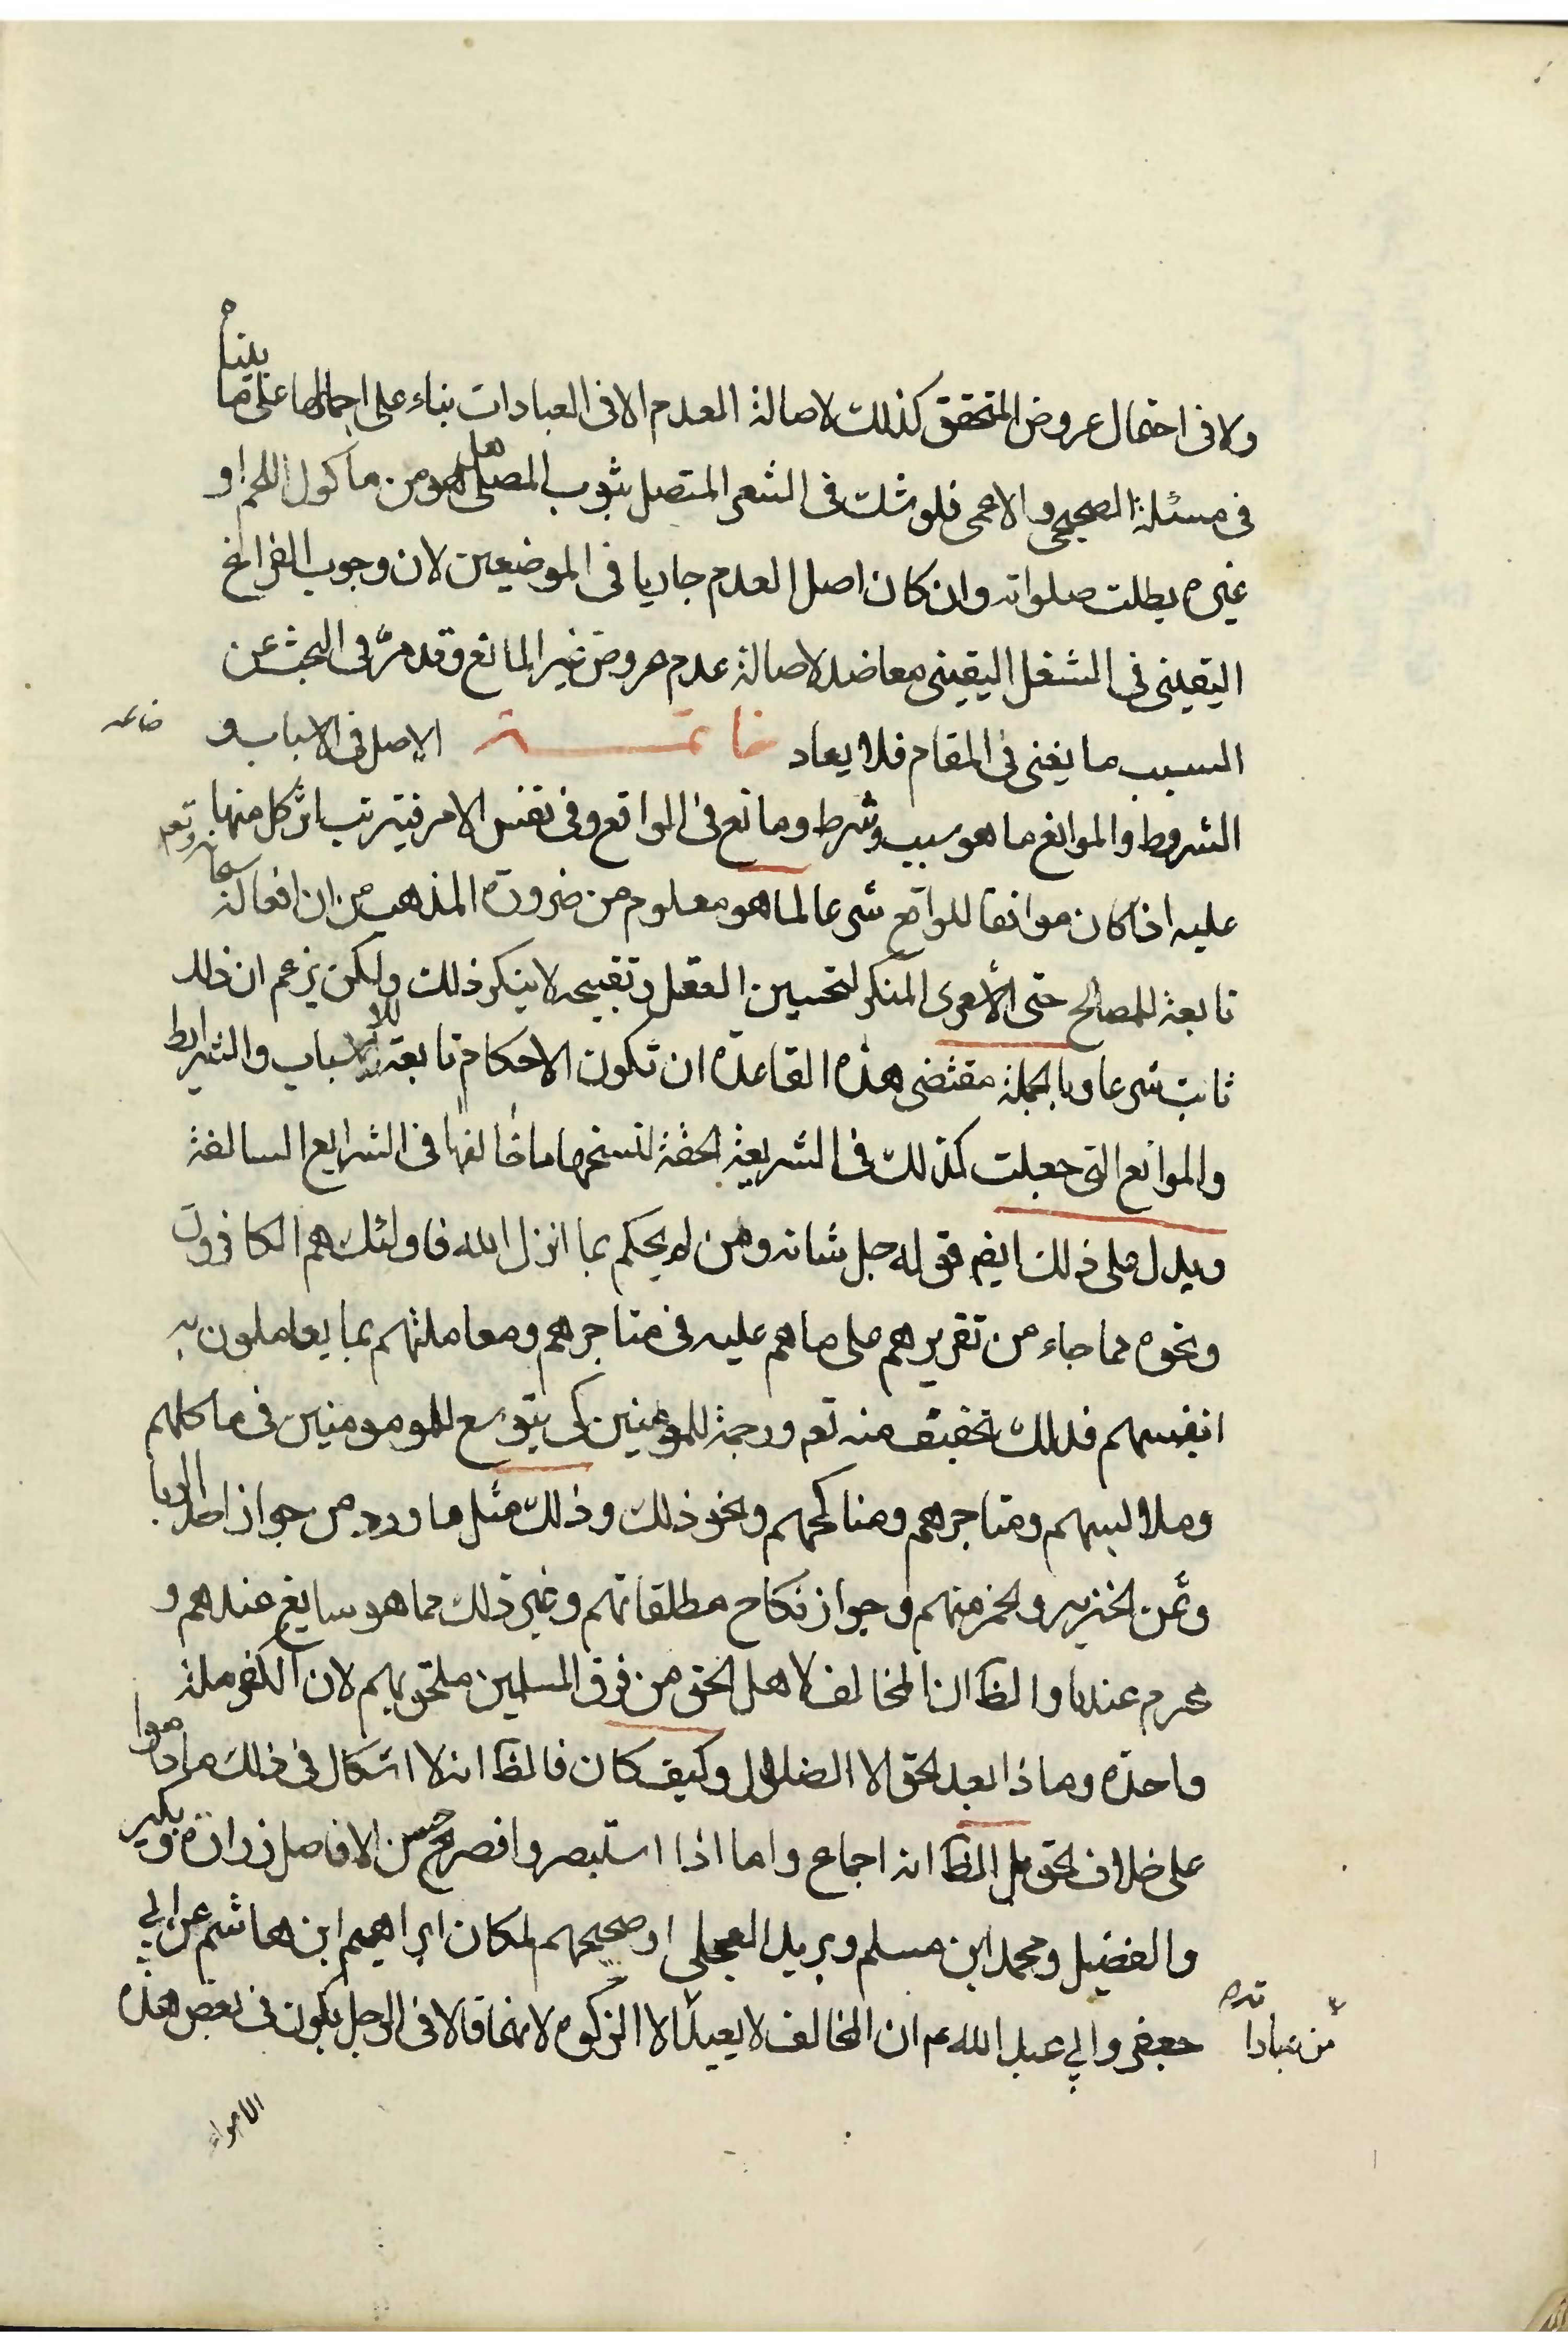 ولا فى احتمال عروض المتحقق كذلك لاصالة العدم الا فى العبادات بناء على اجمالها على ما بيناه
فى مسئلة الصحيحى والاعمى فلو شك فى الشعر المتصل بثوب المصلى هل هو من ماكول اللحم او
غيره بطلت صلواته وان كان اصل العدم جاريا فى الموضعين لان وجوب الفراغ
اليقينى فى الشغل اليقينى معاضد لاصالة عدم عروض غير المانع وقد مرّ فى البحث عن
السبب ما يغنى فى المقام فلا يعاد خاتمــة الاصل فى الاسباب و
خاتمه
الشروط والموانع ما هو سبب وشرط ومانع فى الواقع وفى نفس الامر فيترتب اثر كل منها
عليه اذا كان موافقا للواقع شرعا لما هو معلوم من ضرورة المذهب من ان افعاله سبحانه وتعم
تابعة للمصالح حتى الأشعرى المنكر لتحسين العقل وتقبيحه لا ينكر ذلك ولكن يزعم ان ذلك
ثابت شرعا وبالجملة مقتضى هذه القاعدة ان تكون الاحكام تابعة للاسباب والشرايط
والموانع التى جعلت كذلك فى الشريعة الحقة لنسخها ما خالفها فى الشرايع السالفة
ويدل على ذلك ايضم قوله جل شانه ومن لم يحكم بما انزل الله فاولئك هم الكافرون
ونحوه مما جاء من تقريرهم على ما هم عليه فى متاجرهم ومعاملتهم بما يعاملون به
انفسهم فذلك تخفيف منه تعم ورحمة للمؤمنين كى يتوسع للمومومنين فى ماكلهم
وملابسهم ومتاجرهم ومناكحهم ونحو ذلك وذلك مثل ما ورد من جواز اخذ الربا
وثمن الخنزير والخمر منهم وجواز نكاح مطلقاتهم وغير ذلك مما هو سايغ عندهم و
محرم عندنا والظ ان المخالف لاهل الحق من فرق المسلمين ملحق بهم لان الكفر ملة
واحدة وماذا بعد الحق الا الضلال وكيف كان فالظ انه لا اشكال فى ذلك ما داموا
على خلاف الحق بل الظ انه اجماع واما اذا استبصروا فصريح حسن الافاضل زرارة وبكير
والفضيل ومحمد ابن مسلم وبريد العجلى او صحيحهم لمكان ابراهيم ابن هاشم عن ابي
جعفر وابي عبد الله عم ان المخالف لا يعيد الا الزكوة لانهما قالا فى الرجل يكون فى بعض هذه
من عبادا
الاهواء